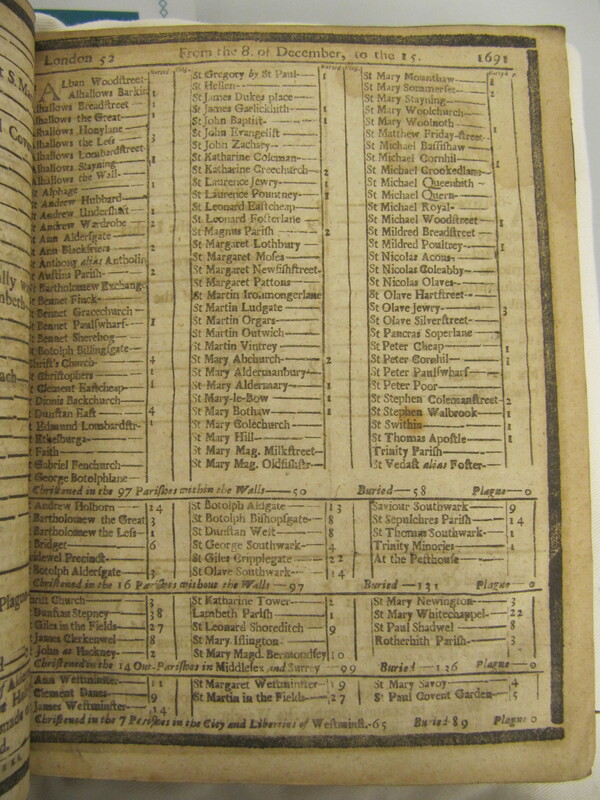 London 52 From the 8. of December, to the 15. 1691
Buried Plag.
ALban Woodſtreet
Alhallows Barkin 1
lhallows Breadſtreet 1
lhallows the Great 1
lhallows Honylane
lhallows the Leſs 3
lhallows Lombardſtreet
lhallows Stayning 1
lhallows the Wall
St Alphage 1
St Andrew Hubbard
St Andrew Underſhaft 1
St Andrew Wardrobe 2
St Ann Alderſgate
St Ann Blackfriers 2
St Anthony alias Antholin
St Auſtins Pariſh 2
St Bartholomew Exchange
St Bennet Finck
Bennet Gracechurch
Bennet Paulſwharf 1
Bennet Sherehog
Botolph Billingſgate
Chriſt's Church 4
Chriſtophers 1
Clement Eaſtcheap 1
Dionis Backchurch
Dunſtan Eaſt 4
Edmund Lombardſtr 1
Ethelburga
Faith
Gabriel Fenchurch
George Botolphlane
Buried Plag.
St Gregory by St Paul
St Hellen
St James Dukes place
St James Garlickhith 1
St John Baptiſt 1
St John Evangeliſt
St John Zachary
St Katharine Coleman
St Katharine Creechurch 2
St Laurence Jewry 1
St Laurence Pountney 1
St Leonard Eaſtcheap
St Leonard Foſterlane
St Magnus Pariſh 2
St Margaret Lothbury
St Margaret Moſes
St Margaret Newfiſhſtreet
St Margaret Pattons
St Martin Ironmongerlane
St Martin Ludgate
St Martin Orgars
St Martin Outwich
St Martin Vintrey
St Mary Abchurch 2
St Mary Aldermanbury
St Mary Aldermary 1
St Mary-le-Bow 1
St Mary Bothaw 1
St Mary Colechurch
St Mary Hill
St Mary Mag. Milkſtreet
St Mary Mag. Oldfiſhſtr
St Mary Mounthaw
St Mary Sommerſet
St Mary Stayning
St Mary Woolchurch
St Mary Woolnoth
St Matthew Friday-ſtreet
St Michael Baſſiſhaw
St Michael Cornhil
St Michael Crookedlane
St Michael Queenhith
St Michael Quern
St Michael Royal
St Michael Woodſtreet 1
St Mildred Breadſtreet
St Mildred Poultney 1
St Nicolas Acons
St Nicolas Coleabby
St Nicolas Olaves
St Olave Hartſtreet
St Olave Jewry 3
St Olave Silverſtreet
St Pancras Soperlane
St Peter Cheap 1
St Peter Cornhil 1
St Peter Paulſwharf
St Peter Poor
St Stephen Colemanſtreet 2
St Stephen Walbrook 1
St Swithin 1
St Thomas Apoſtle 1
Trinity Pariſh
St Vedaſt alias Foſter
Chriſtened in the 97 Pariſhes within the Walls 50 Buried 58 Plague 0
Andrew Holborn 14
Bartholomew the Great 3
Bartholomew the Leſs 1
Bridget 6
Bridewel Precinct
Botolph Alderſgate 3
St Botolph Aldgate 13
St Botolph Biſhopſgate 8
St Dunſtan Weſt 8
St George Southwark 4
St Giles Cripplegate 22
St Olave Southwark 14
Saviour Southwark 9
St Sepulchres Pariſh 14
St Thomas Southwark 1
Trinity Minories 1
At the Peſthouſe
Chriſtened in the 16 Pariſhes without the Walls 97 Buried 131 Plague 0
Chriſt Church 3
Dunſtan Stepney 38
Giles in the Fields 27
James Clerkenwel 8
John at Hackney 2
St Katharine Tower 2
Lambeth Pariſh 1
St Leonard Shoreditch 9
St Mary Iſlington
St Mary Magd. Bermondſey 10
St Mary Newington 3
St Mary Whitechappel 22
St Paul Shadwel 8
Rotherhith Pariſh 3
Chriſtened in the 14 Out-Pariſhes in Middleſex and Surrey 99 Buried 136 Plague 0
Ann Weſtminſter 11
Clement Danes 9
James Weſtminſter 14
St Margaret Weſtminſter 19
St Martin in the Fields 27
St Mary Savoy 4
St Paul Covent Garden 5
Chriſtened in the 7 Pariſhes in the City and Liberties of Weſtminſt. 65 Buried 89 Plague 0